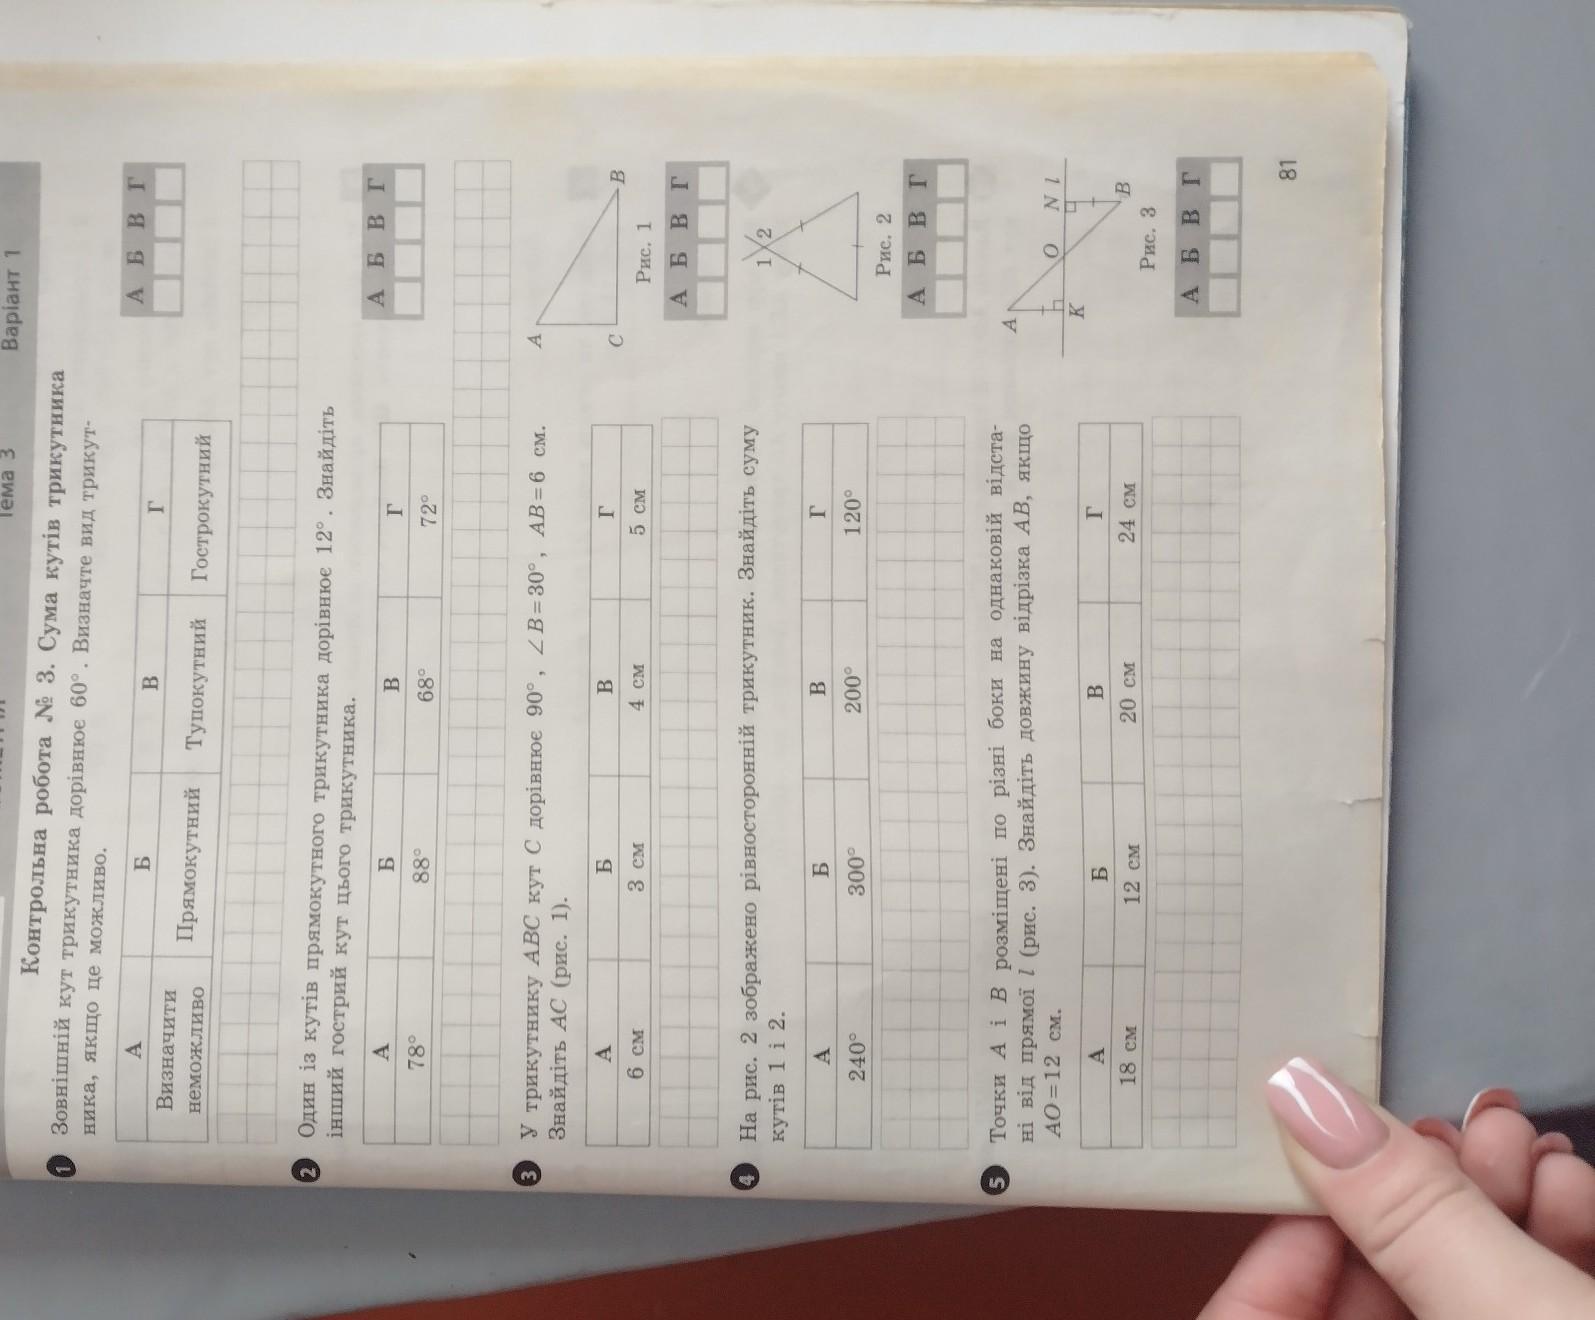 Тема 3 Варіант 1
Контрольна робота № 3. Сума кутів трикутника
1 Зовнішній кут трикутника дорівнює 60°. Визначте вид трикут-
ника, якщо це можливо.
А Б В Г
Визначити неможливо Прямокутний Тупокутний Гострокутний
А Б В Г
2 Один із кутів прямокутного трикутника дорівнює 12°. Знайдіть
інший гострий кут цього трикутника.
А Б В Г
78° 88° 68° 72°
А Б В Г
3 У трикутнику ABC кут C дорівнює 90°, ∠B=30°, AB=6 см.
Знайдіть AC (рис. 1).
А Б В Г
6 см 3 см 4 см 5 см
A
C B
Рис. 1
А Б В Г
4 На рис. 2 зображено рівносторонній трикутник. Знайдіть суму
кутів 1 і 2.
А Б В Г
240° 300° 200° 120°
1 2
Рис. 2
А Б В Г
5 Точки A і B розміщені по різні боки на однаковій відста-
ні від прямої l (рис. 3). Знайдіть довжину відрізка AB, якщо
AO=12 см.
А Б В Г
18 см 12 см 20 см 24 см
A
O N l
K
B
Рис. 3
А Б В Г
81